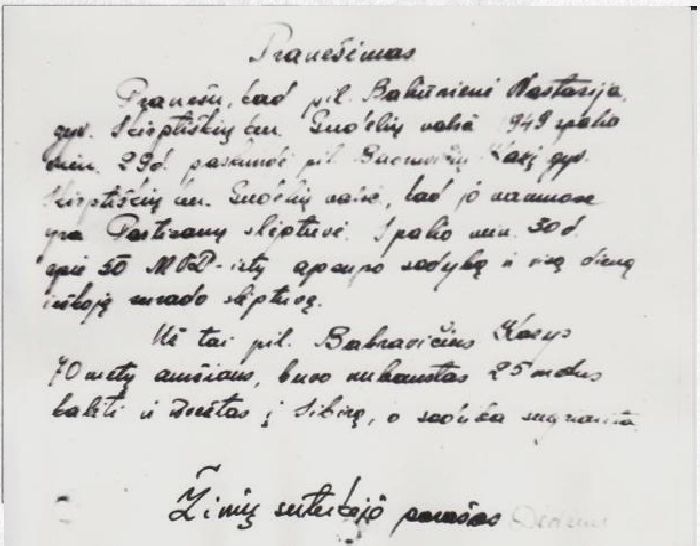 Pranešimas
Pranešu, kad pil. Bakūnienė Nastasija,
gyv. Skirptiškių km. Gudelių valsč 1949 spalio
mėn. 29 d. paskundė pil. Kazį gyv.
Skirptiškių km. Gudelių valsč, kad jo namuose
yra Partizanų slėptuvė. Spalio mėn. 30 d.
apie 50 MVD-istų apsupo sodybą ir visą dieną
ieškoję nerado slėptuvę.
Už tai pil. Bakravičius Kazys
70 metų amžiaus, buvo nubaustas 25 metus
kalėti ir ištremtas į Sibirą, o sodyba
Žinių suteikėjo parašas